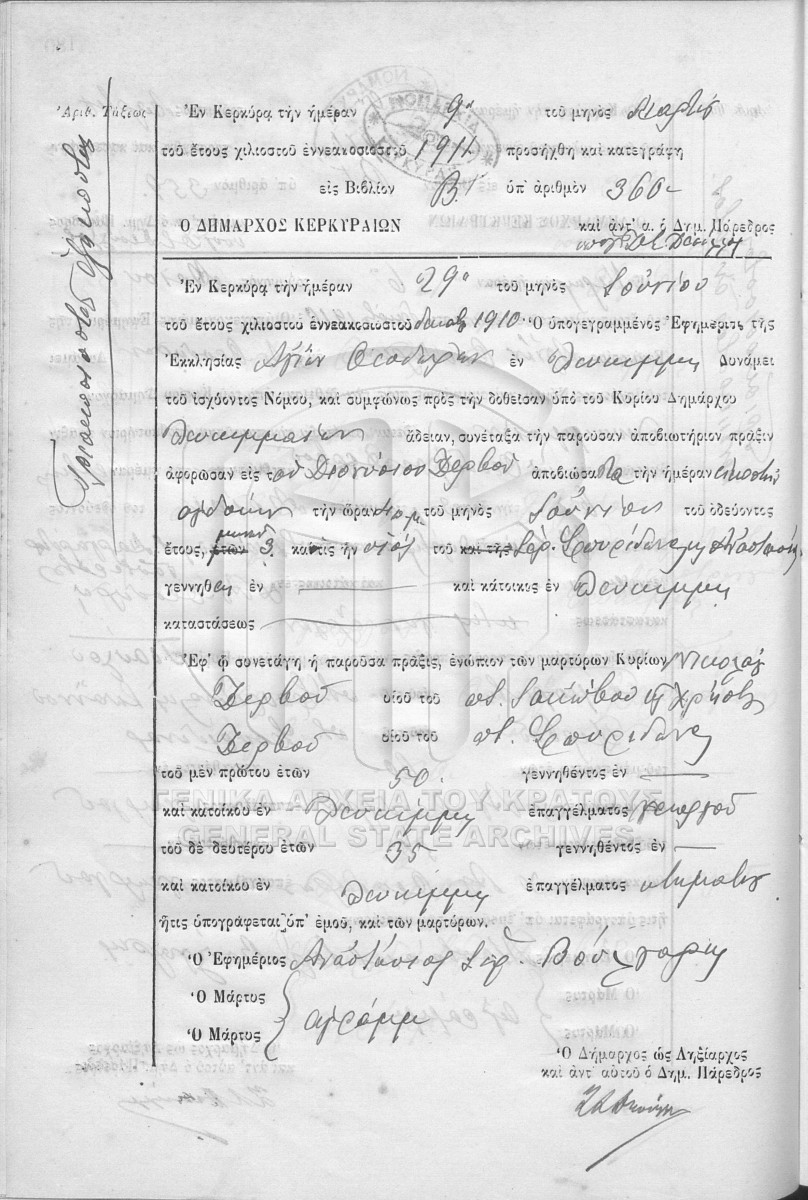 Ἀριθ. Τάξεως
Τριακοσιοστὸς ἑξηκοστὸς
Ἐν Κερκύρᾳ τὴν ἡμέραν 9η τοῦ μηνὸς Μαρτίου
τοῦ ἔτους χιλιοστοῦ ἐννεακοσιοστοῦ 1911 προσήχθη καὶ κατεγράφη
εἰς Βιβλίον Β.' ὑπ' ἀριθμὸν 360
Ο ΔΗΜΑΡΧΟΣ ΚΕΡΚΥΡΑΙΩΝ καὶ ἀντ' α. ὁ Δημ. Πάρεδρος
Ἐν Κερκύρᾳ τὴν ἡμέραν 29η τοῦ μηνὸς Ἰουνίου
τοῦ ἔτους χιλιοστοῦ ἐννεακοσιοστοῦ δεκάτου 1910. Ὁ ὑπογεγραμμένος Ἐφημέριος τῆς
Ἐκκλησίας Ἁγίων Θεοδώρων ἐν Λευκίμμῃ Δυνάμει
τοῦ ἰσχύοντος Νόμου, καὶ συμφώνως πρὸς τὴν δοθεῖσαν ὑπὸ τοῦ Κυρίου Δημάρχου
Λευκιμμαίων ἄδειαν, συνέταξα τὴν παροῦσαν ἀποβιωτήριον πρᾶξιν
ἀφορῶσαν εἰς τὸν Διονύσιον Ζερβοῦ ἀποβιώσαντα τὴν ἡμέραν εἰκοστὴν
ὀγδόην τὴν ὥραν μ.μ. τοῦ μηνὸς Ἰουνίου τοῦ ὁδεύοντος
ἔτους, ἐτῶν μηνῶν 3 καὶ τις ἦν υἱὸς τοῦ καὶ τῆς Σπυρίδωνος Ἀναστασίας
γεννηθεὶς ἐν καὶ κάτοικος ἐν Λευκίμμῃ
καταστάσεως
Ἐφ' ᾧ συνετάγη ἡ παροῦσα πρᾶξις, ἐνώπιον τῶν μαρτύρων Κυρίων Νικολάου
Ζερβοῦ υἱοῦ τοῦ ποτ. Ἰακώβου καὶ Χρήστου
Ζερβοῦ υἱοῦ τοῦ ποτ. Σπυρίδωνος
τοῦ μὲν πρώτου ἐτῶν 50. γεννηθέντος ἐν
καὶ κατοίκου ἐν Λευκίμμῃ ἐπαγγέλματος γεωργοῦ
τοῦ δὲ δευτέρου ἐτῶν 35 γεννηθέντος ἐν
καὶ κατοίκου ἐν Λευκίμμῃ ἐπαγγέλματος κτηματίου
ἥτις ὑπογράφεται ὑπ' ἐμοῦ, καὶ τῶν μαρτύρων.
Ὁ Ἐφημέριος Ἀναστάσιος Ἱερ. Βούλγαρης
Ὁ Μάρτυς
Ὁ Μάρτυς ἀγράμμ
Ὁ Δήμαρχος ὡς Ληξίαρχος
καὶ ἀντ' αὐτοῦ ὁ Δημ. Πάρεδρος
ΓΕΝΙΚΑ ΑΡΧΕΙΑ ΤΟΥ ΚΡΑΤΟΥΣ
GENERAL STATE ARCHIVES